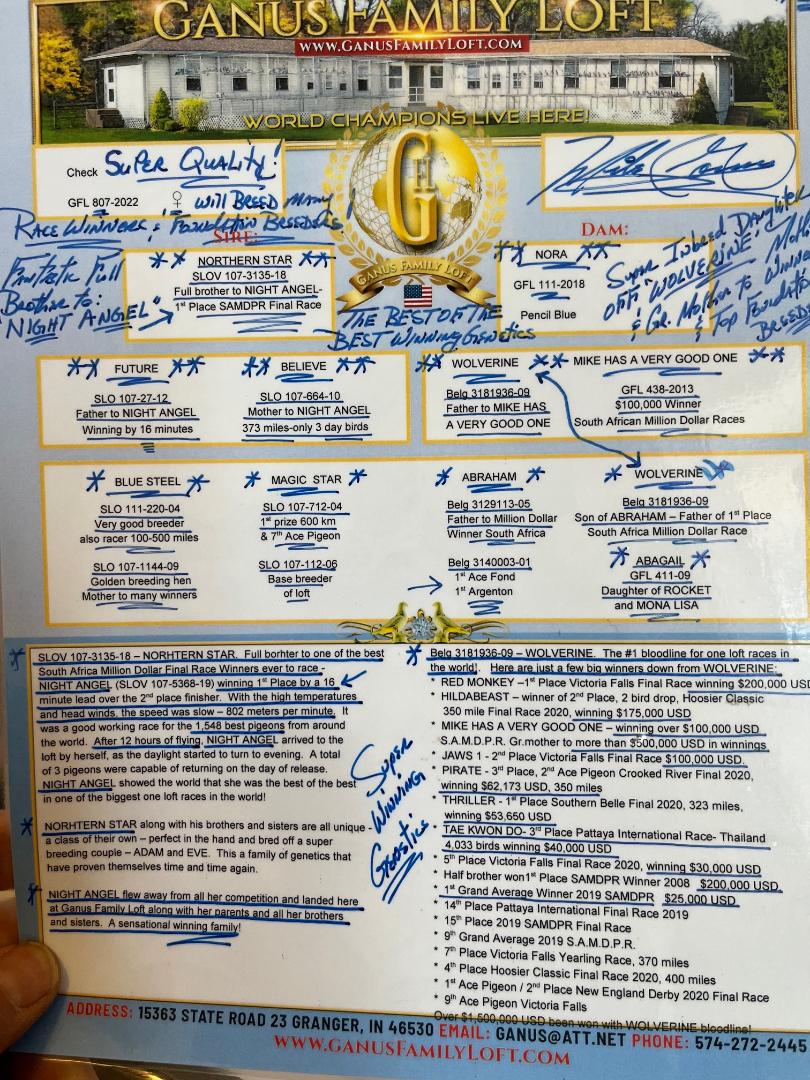 GANUS FAMILY LOFT
WWW.GANUSFAMILYLOFT.COM
WORLD CHAMPIONS LIVE HERE!
Check Super Quality!
GFL 807-2022 ♀ Will Breed Many
Race Winners & Foundation Breeders!
G
GANUS FAMILY LOFT
SIRE:
** NORTHERN STAR **
SLOV 107-3135-18
Full brother to NIGHT ANGEL-
1st Place SAMDPR Final Race
Fantastic Full
Brother to:
"NIGHT ANGEL"
The Best of the
Best Winning Genetics
DAM:
** NORA **
GFL 111-2018
Pencil Blue
Super Inbred Daughter
off "WOLVERINE"!
& Gr. Mother to Winners
& Top Foundation
Breeders
** FUTURE **
SLO 107-27-12
Father to NIGHT ANGEL
Winning by 16 minutes
** BELIEVE **
SLO 107-664-10
Mother to NIGHT ANGEL
373 miles-only 3 day birds
** WOLVERINE **
Belg 3181936-09
Father to MIKE HAS
A VERY GOOD ONE
MIKE HAS A VERY GOOD ONE **
GFL 438-2013
$100,000 Winner
South African Million Dollar Races
* BLUE STEEL *
SLO 111-220-04
Very good breeder
also racer 100-500 miles
SLO 107-1144-09
Golden breeding hen
Mother to many winners
* MAGIC STAR *
SLO 107-712-04
1st prize 600 km
& 7th Ace Pigeon
SLO 107-112-06
Base breeder
of loft
* ABRAHAM *
Belg 3129113-05
Father to Million Dollar
Winner South Africa
Belg 3140003-01
1st Ace Fond
1st Argenton
* WOLVERINE *
Belg 3181936-09
Son of ABRAHAM – Father of 1st Place
South Africa Million Dollar Race
* ABAGAIL *
GFL 411-09
Daughter of ROCKET
and MONA LISA
* SLOV 107-3135-18 – NORHTERN STAR. Full borhter to one of the best
South Africa Million Dollar Final Race Winners ever to race -
NIGHT ANGEL (SLOV 107-5368-19) winning 1st Place by a 16
minute lead over the 2nd place finisher. With the high temperatures
and head winds, the speed was slow – 802 meters per minute. It
was a good working race for the 1,548 best pigeons from around
the world. After 12 hours of flying, NIGHT ANGEL arrived to the
loft by herself, as the daylight started to turn to evening. A total
of 3 pigeons were capable of returning on the day of release.
NIGHT ANGEL showed the world that she was the best of the best
in one of the biggest one loft races in the world!
* NORHTERN STAR along with his brothers and sisters are all unique -
a class of their own – perfect in the hand and bred off a super
breeding couple – ADAM and EVE. This a family of genetics that
have proven themselves time and time again.
* NIGHT ANGEL flew away from all her competition and landed here
at Ganus Family Loft along with her parents and all her brothers
and sisters. A sensational winning family!
Super
Winning
Genetics
* Belg 3181936-09 – WOLVERINE. The #1 bloodline for one loft races in
the world!. Here are just a few big winners down from WOLVERINE:
* RED MONKEY –1st Place Victoria Falls Final Race winning $200,000 USD
* HILDABEAST – winner of 2nd Place, 2 bird drop, Hoosier Classic
350 mile Final Race 2020, winning $175,000 USD
* MIKE HAS A VERY GOOD ONE – winning over $100,000 USD
S.A.M.D.P.R. Gr.mother to more than $500,000 USD in winnings
* JAWS 1 - 2nd Place Victoria Falls Final Race $100,000 USD.
* PIRATE - 3rd Place, 2nd Ace Pigeon Crooked River Final 2020,
winning $62,173 USD, 350 miles
* THRILLER - 1st Place Southern Belle Final 2020, 323 miles,
winning $53,650 USD
* TAE KWON DO- 3rd Place Pattaya International Race- Thailand
4,033 birds winning $40,000 USD
* 5th Place Victoria Falls Final Race 2020, winning $30,000 USD
* Half brother won1st Place SAMDPR Winner 2008 $200,000 USD
* 1st Grand Average Winner 2019 SAMDPR $25,000 USD
* 14th Place Pattaya International Final Race 2019
* 15th Place 2019 SAMDPR Final Race
* 9th Grand Average 2019 S.A.M.D.P.R.
* 7th Place Victoria Falls Yearling Race, 370 miles
* 4th Place Hoosier Classic Final Race 2020, 400 miles
* 1st Ace Pigeon / 2nd Place New England Derby 2020 Final Race
* 9th Ace Pigeon Victoria Falls
Over $1,500,000 USD been won with WOLVERINE bloodline!
ADDRESS: 15363 STATE ROAD 23 GRANGER, IN 46530 EMAIL: GANUS@ATT.NET PHONE: 574-272-2445
WWW.GANUSFAMILYLOFT.COM